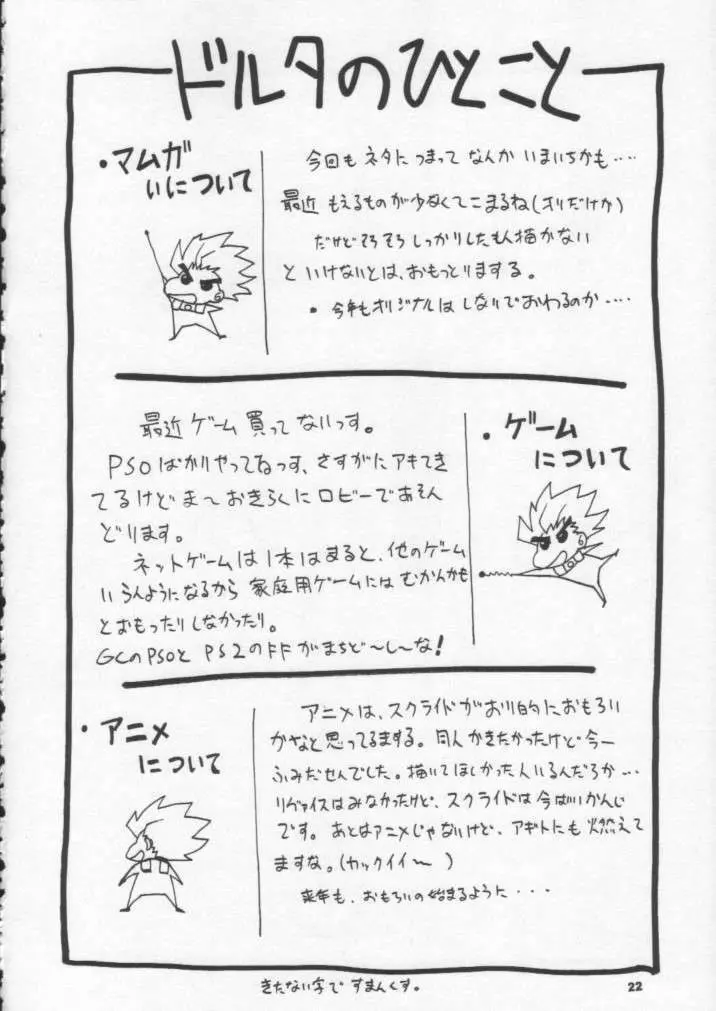 ドルタのひとこと
・マムガ
いについて
今回もネタにつまってなんかいまいちかも‥‥
最近もえるものが少なくてこまるね(オリだけか)
だけどそろそろしっかりしたもん描かない
といけないとは、おもっとりまする。
・今年もオリジナルはしないでおわるのか‥‥
・ゲーム
について
最近ゲーム買ってないっす。
PSOばかりやってるっす、さすがにアキてき
てるけどま〜おきらくにロビーであそん
どります。
ネットゲームは1本はまると、他のゲーム
いらんようになるから家庭用ゲームにはむかんかも
とおもったりしなかったり。
GCのPSOとPS2のFFがまちど〜し〜な!
・アニメ
について
アニメは、スクライドがおり的におもろい
かなと思ってるまする。同人かきたかったけど今一
ふみだせんでした。描いてほしかった人いるんだろか‥‥
リヴァイスはみなかったけど、スクライドは今はいいかんじ
です。あとはアニメじゃないけど、アギトにも燃えて
ますな。(カックイイ〜)
来年も、おもろいの始まるように・・・
きたない字ですまんくす。
22